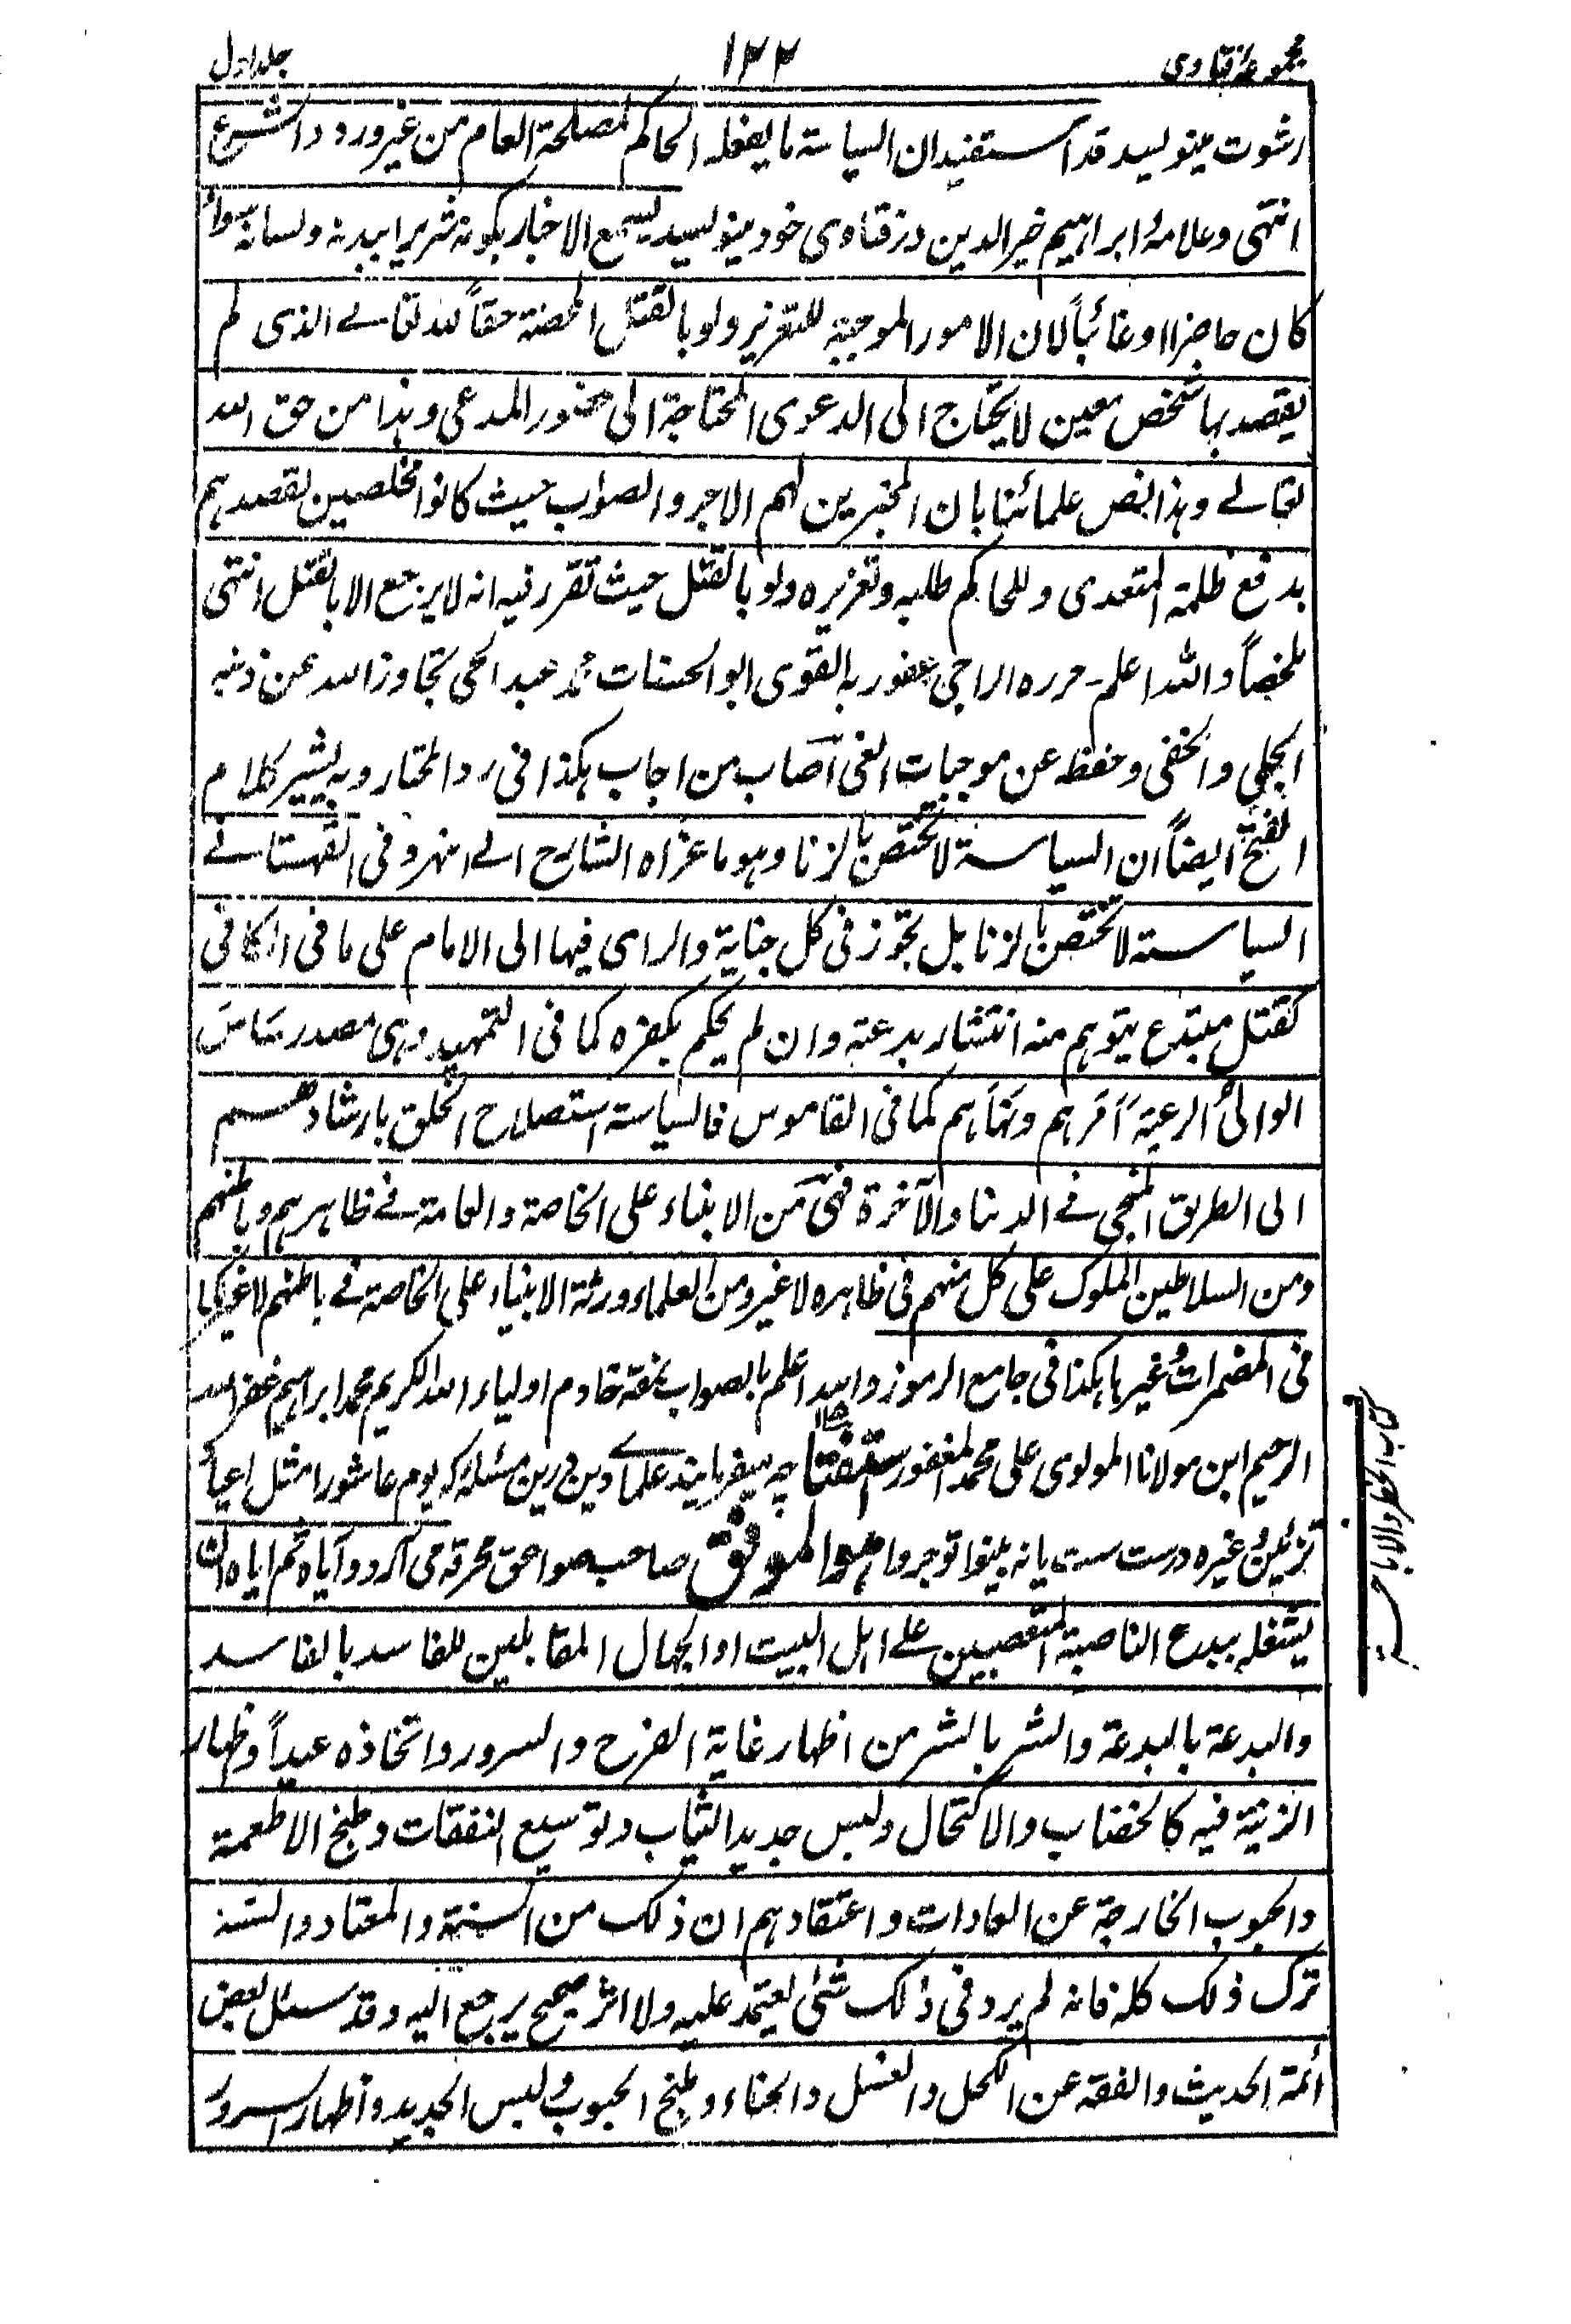 مجموعۂ فتاوی
۱۲۲
جلد اول
رشوت مینویسد قد استفید ان السیاسة ما یفعله الحاکم لمصلحة العام من غیر ورود الشرع
انتهی وعلامۂ ابراہیم خیرالدین در فتاوی خود مینویسد یسمع الاخبار بکونه شریرا بیدنه ولسانه سواءً
کان حاضرا اوغائباً لان الامور الموجبة للتعزیر ولو بالقتل المحضة حقاً للہ تعالے الذی لم
یقصد بہا شخص معین لا یحتاج الی الدعوی المحتاجة الی حضور المدعی وہذا من حق اللہ
تعالے وہذا بنص علمائنا بان المخبرین لہم الاجر والصواب حیث کانوا مخلصین لقصدہم
بدفع ظلمة المتعدی وللحاکم طلبه وتعزیرہ ولو بالقتل حیث تقرر فیه انه لا یرجع الا بالقتل انتهی
ملخصاً واللہ اعلم۔ حررہ الراجی عفو ربه القوی ابو الحسنات محمد عبد الحی تجاوز اللہ عن ذنبه
الجلی والخفی وحفظه عن موجبات الغی اصاب من اجاب ہکذا فی رد المحتار وبه یشیر کلام
الفتح ایضاً ان السیاسة لا تختص بالزنا وہو ما عزاہ الشارح الے النہر وفی القہستانے
السیاسة لا تختص بالزنا بل تجوز فی کل جنایة والرای فیہا الی الامام علی ما فی الکافی
کقتل مبتدع یتوہم منه انتشار بدعته وان لم یحکم بکفرہ کما فی التمہید وہی مصدر ساسَ
الوالیُ الرعیةَ اَمَرَہم ونَہَاہم کما فی القاموس فالسیاسة استصلاح الخلق بارشادهم
الی الطریق المنجی فے الدنیا والآخرة فہیَ مِن الانبیاء علی الخاصة والعامة فے ظاہرہم وباطنہم
ومن السلاطین الملوک علی کل منہم فی ظاہرہ لا غیر ومن العلماء ورثة الانبیاء علی الخاصة فے باطنہم لا غیر کما
فی المضمرات وغیرہا ہکذا فی جامع الرموز واللہ اعلم بالصواب نمقه خادم اولیاء اللہ الکریم محمد ابراہیم غفر اللہ
الرحیم ابن مولانا المولوی علی محمد المغفور استفتا چه میفرمایند علماے دین درین مسئلہ که یوم عاشورا مثل اعیاد
تزئین وغیرہ درست ست یا نه بینوا توجروا ہو الموفق صاحب صواعق محرقہ می آرد وایاہ ثم ایاہ ان
یشغله ببدع الناصبة المتعصبین علے اہل البیت او الجہال المقابلین للفاسد بالفاسد
والبدعة بالبدعة والشر بالشر من اظہار غایة الفرح والسرور واتخاذہ عیداً واظہار
الزینة فیه کالخضاب والاکتحال ولبس جدید الثیاب وتوسیع النفقات وطبخ الاطعمة
والحبوب الخارجة عن العادات واعتقادہم ان ذلک من السنة والمعتاد والسنة
ترک ذلک کله فانه لم یرد فی ذلک شئ یعتمد علیه ولا اثر صحیح یرجع الیه وقد سئل بعض
أئمة الحدیث والفقه عن الکحل والغسل والحناء وطبخ الحبوب ولبس الجدید واظہار السرور
کتاب الحظر والاباحة